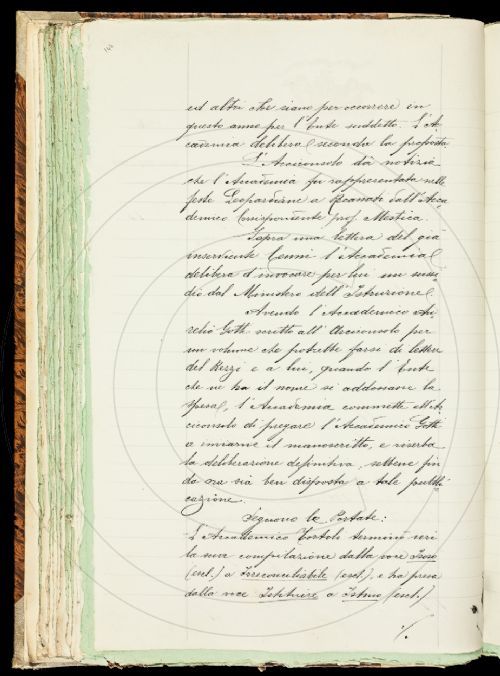 ed altri che siano per occorrere in
questo anno per l'Ente suddetto. L'Ac
cademia delibera secondo la proposta
L'Arciconsolo dà notizia
che l'Accademia fu rappresentata nelle
feste Leopardiane a Recanati dall'Acca
demico Corrispondente prof. Mestica.
Sopra una lettera del già
inserviente l'Accademia
delibera d'invocare per lui un sussi
dio dal Ministero dell'Istruzione.
Avendo l'Accademico Au
relio Gotti scritto all'Arciconsolo per
un volume che potrebbe farsi di lettere
del Rezzi e a lui, quando l'Ente
che ne ha il nome si addossasse la
spesa, l'Accademia commette all'Ar
ciconsolo di pregare l'Accademico Gotti
a inviarne il manoscritto, e riserba
la deliberazione definitiva, sebbene fin
da ora sia ben disposta a tale pubbli
cazione.
Seguono le Portate:
L'Accademico Tortoli terminò ieri
la sua compilazione dalla voce
(escl.) a Irreconciliabile (escl.), e ha preso
dalla voce Istituire a Istmo (escl.)
./.